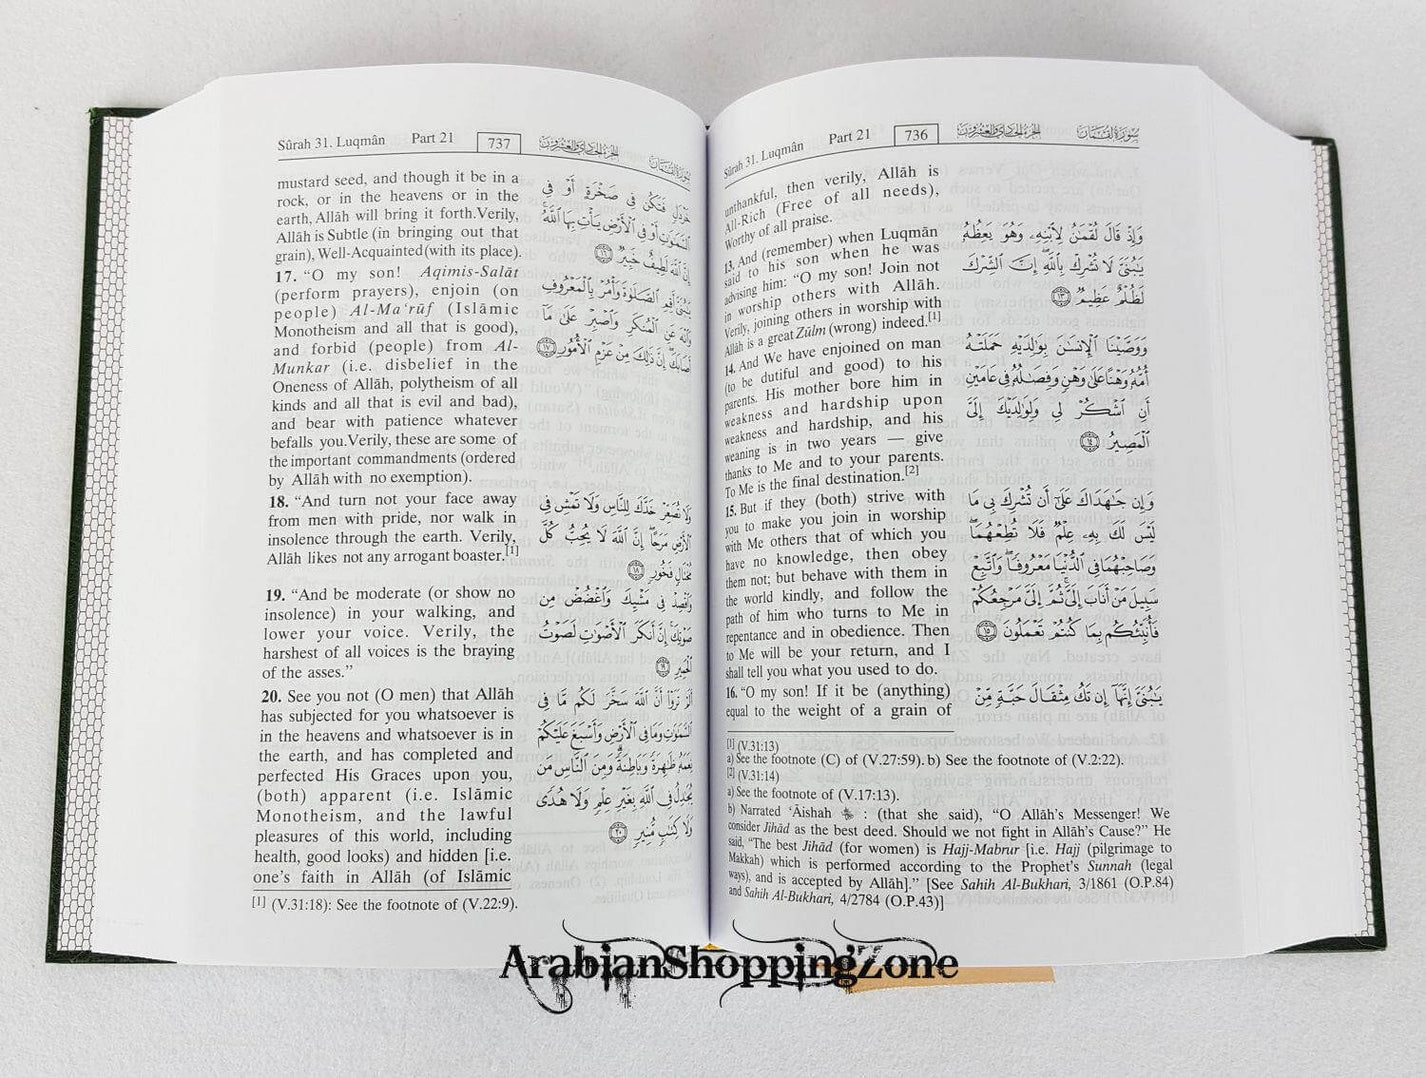 Sûrah 31. Luqmân Part 21 736 الجزء الحادي والعشرون سورة لقمان
unthankful, then verily, Allâh is
All-Rich (Free of all needs),
Worthy of all praise.
13. And (remember) when Luqmân
said to his son when he was
advising him: “O my son! Join not
in worship others with Allâh.
Verily, joining others in worship with
Allâh is a great Zûlm (wrong) indeed.[1]
14. And We have enjoined on man
(to be dutiful and good) to his
parents. His mother bore him in
weakness and hardship upon
weakness and hardship, and his
weaning is in two years — give
thanks to Me and to your parents.
To Me is the final destination.[2]
15. But if they (both) strive with
you to make you join in worship
with Me others that of which you
have no knowledge, then obey
them not; but behave with them in
the world kindly, and follow the
path of him who turns to Me in
repentance and in obedience. Then
to Me will be your return, and I
shall tell you what you used to do.
16. “O my son! If it be (anything)
equal to the weight of a grain of
وَإِذْ قَالَ لُقْمَٰنُ لِٱبْنِهِۦ وَهُوَ يَعِظُهُۥ
يَٰبُنَىَّ لَا تُشْرِكْ بِٱللَّهِ إِنَّ ٱلشِّرْكَ
لَظُلْمٌ عَظِيمٌ ١٣
وَوَصَّيْنَا ٱلْإِنسَٰنَ بِوَٰلِدَيْهِ حَمَلَتْهُ
أُمُّهُۥ وَهْنًا عَلَىٰ وَهْنٍ وَفِصَٰلُهُۥ فِى عَامَيْنِ
أَنِ ٱشْكُرْ لِى وَلِوَٰلِدَيْكَ إِلَىَّ
ٱلْمَصِيرُ ١٤
وَإِن جَٰهَدَاكَ عَلَىٰٓ أَن تُشْرِكَ بِى مَا
لَيْسَ لَكَ بِهِۦ عِلْمٌ فَلَا تُطِعْهُمَا
وَصَاحِبْهُمَا فِى ٱلدُّنْيَا مَعْرُوفًا وَٱتَّبِعْ
سَبِيلَ مَنْ أَنَابَ إِلَىَّ ثُمَّ إِلَىَّ مَرْجِعُكُمْ
فَأُنَبِّئُكُم بِمَا كُنتُمْ تَعْمَلُونَ ١٥
يَٰبُنَىَّ إِنَّهَآ إِن تَكُ مِثْقَالَ حَبَّةٍ مِّنْ
[1] (V.31:13)
a) See the footnote (C) of (V.27:59). b) See the footnote of (V.2:22).
[2] (V.31:14)
a) See the footnote of (V.17:13).
b) Narrated ‘Āishah : (that she said), “O Allâh’s Messenger! We
consider Jihâd as the best deed. Should we not fight in Allâh’s Cause?” He
said, “The best Jihâd (for women) is Hajj-Mabrur [i.e. Hajj (pilgrimage to
Makkah) which is performed according to the Prophet’s Sunnah (legal
ways), and is accepted by Allâh].” [See Sahih Al-Bukhari, 3/1861 (O.P.84)
and Sahih Al-Bukhari, 4/2784 (O.P.43)]
Sûrah 31. Luqmân Part 21 737 الجزء الحادي والعشرون سورة لقمان
mustard seed, and though it be in a
rock, or in the heavens or in the
earth, Allâh will bring it forth.Verily,
Allâh is Subtle (in bringing out that
grain), Well-Acquainted (with its place).
17. “O my son! Aqimis-Salât
(perform prayers), enjoin (on
people) Al-Ma‘rûf (Islâmic
Monotheism and all that is good),
and forbid (people) from Al-
Munkar (i.e. disbelief in the
Oneness of Allâh, polytheism of all
kinds and all that is evil and bad),
and bear with patience whatever
befalls you.Verily, these are some of
the important commandments (ordered
by Allâh with no exemption).
18. “And turn not your face away
from men with pride, nor walk in
insolence through the earth. Verily,
Allâh likes not any arrogant boaster.[1]
19. “And be moderate (or show no
insolence) in your walking, and
lower your voice. Verily, the
harshest of all voices is the braying
of the asses.”
20. See you not (O men) that Allâh
has subjected for you whatsoever is
in the heavens and whatsoever is in
the earth, and has completed and
perfected His Graces upon you,
(both) apparent (i.e. Islâmic
Monotheism, and the lawful
pleasures of this world, including
health, good looks) and hidden [i.e.
one’s faith in Allâh (of Islâmic
خَرْدَلٍ فَتَكُن فِى صَخْرَةٍ أَوْ فِى
ٱلسَّمَٰوَٰتِ أَوْ فِى ٱلْأَرْضِ يَأْتِ بِهَا ٱللَّهُ
إِنَّ ٱللَّهَ لَطِيفٌ خَبِيرٌ ١٦
يَٰبُنَىَّ أَقِمِ ٱلصَّلَوٰةَ وَأْمُرْ بِٱلْمَعْرُوفِ
وَٱنْهَ عَنِ ٱلْمُنكَرِ وَٱصْبِرْ عَلَىٰ مَآ
أَصَابَكَ إِنَّ ذَٰلِكَ مِنْ عَزْمِ ٱلْأُمُورِ ١٧
وَلَا تُصَعِّرْ خَدَّكَ لِلنَّاسِ وَلَا تَمْشِ فِى
ٱلْأَرْضِ مَرَحًا إِنَّ ٱللَّهَ لَا يُحِبُّ كُلَّ
مُخْتَالٍ فَخُورٍ ١٨
وَٱقْصِدْ فِى مَشْيِكَ وَٱغْضُضْ مِن
صَوْتِكَ إِنَّ أَنكَرَ ٱلْأَصْوَٰتِ لَصَوْتُ
ٱلْحَمِيرِ ١٩
أَلَمْ تَرَوْا۟ أَنَّ ٱللَّهَ سَخَّرَ لَكُم مَّا فِى
ٱلسَّمَٰوَٰتِ وَمَا فِى ٱلْأَرْضِ وَأَسْبَغَ عَلَيْكُمْ
نِعَمَهُۥ ظَٰهِرَةً وَبَاطِنَةً وَمِنَ ٱلنَّاسِ مَن
يُجَٰدِلُ فِى ٱللَّهِ بِغَيْرِ عِلْمٍ وَلَا هُدًى
وَلَا كِتَٰبٍ مُّنِيرٍ ٢٠
[1] (V.31:18): See the footnote of (V.22:9).
ArabianShoppingZone